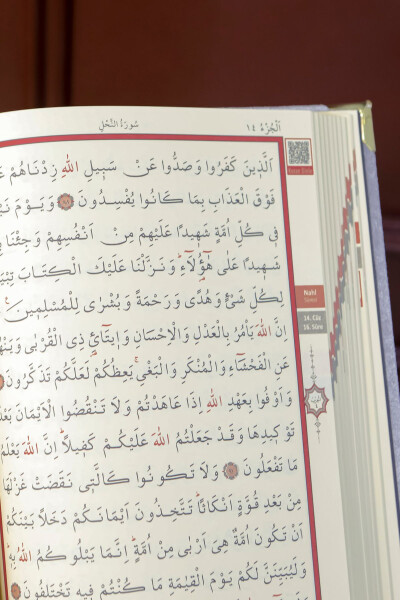 اَلْجُزْءُ ١٤
سُورَةُ النَّحْلِ
اَلَّذ۪ينَ كَفَرُوا وَصَدُّوا عَنْ سَب۪يلِ اللّٰهِ زِدْنَاهُمْ
فَوْقَ الْعَذَابِ بِمَا كَانُوا يُفْسِدُونَ ﴿٨٨﴾ وَيَوْمَ
ف۪ي كُلِّ اُمَّةٍ شَه۪يدًا عَلَيْهِمْ مِنْ اَنْفُسِهِمْ وَجِئْنَا
شَه۪يدًا عَلٰى هٰٓؤُ۬لَٓاءِۜ وَنَزَّلْنَا عَلَيْكَ الْكِتَابَ
لِكُلِّ شَيْءٍ وَهُدًى وَرَحْمَةً وَبُشْرٰى لِلْمُسْلِم۪ينَ
اِنَّ اللّٰهَ يَأْمُرُ بِالْعَدْلِ وَالْاِحْسَانِ وَا۪يتَٓائِ ذِي الْقُرْبٰى
عَنِ الْفَحْشَٓاءِ وَالْمُنْكَرِ وَالْبَغْيِۚ يَعِظُكُمْ لَعَلَّكُمْ تَذَكَّرُونَ
وَاَوْفُوا بِعَهْدِ اللّٰهِ اِذَا عَاهَدْتُمْ وَلَا تَنْقُضُوا الْاَيْمَانَ
تَوْك۪يدِهَا وَقَدْ جَعَلْتُمُ اللّٰهَ عَلَيْكُمْ كَف۪يلًاۜ اِنَّ اللّٰهَ
مَا تَفْعَلُونَ ﴿٩١﴾ وَلَا تَكُونُوا كَالَّت۪ي نَقَضَتْ غَزْلَهَا
مِنْ بَعْدِ قُوَّةٍ اَنْكَاثًاۜ تَتَّخِذُونَ اَيْمَانَكُمْ دَخَلًا بَيْنَكُمْ
اَنْ تَكُونَ اُمَّةٌ هِيَ اَرْبٰى مِنْ اُمَّةٍۜ اِنَّمَا يَبْلُوكُمُ اللّٰهُ بِه۪ۜ
وَلَيُبَيِّنَنَّ لَكُمْ يَوْمَ الْقِيٰمَةِ مَا كُنْتُمْ ف۪يهِ تَخْتَلِفُونَ
Nahl
Sûresi
14. Cüz
16. Sûre